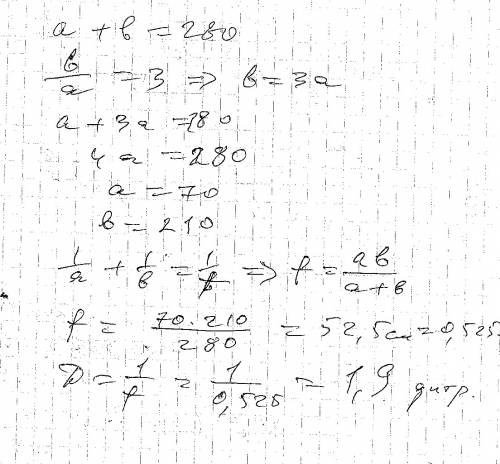 a + b = 280
b/a = 3 => b = 3a
a + 3a = 280
4a = 280
a = 70
b = 210
1/a + 1/b = 1/f => f = ab/(a+b)
f = 70·210/280 = 52,5см = 0,525
D = 1/f = 1/0,525 = 1,9 дптр.